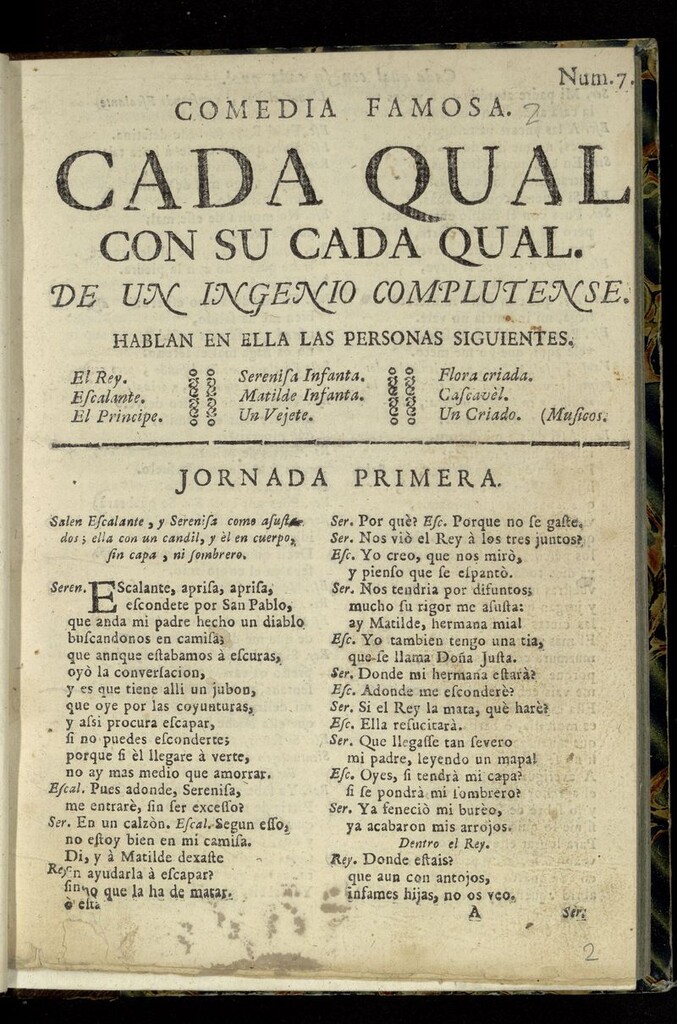 Num.7.
COMEDIA FAMOSA. 2
CADA QUAL
CON SU CADA QUAL.
DE UN INGENIO COMPLUTENSE.
HABLAN EN ELLA LAS PERSONAS SIGUIENTES.
El Rey. Sereniſa Infanta. Flora criada.
Eſcalante. Matilde Infanta. Caſcavèl.
El Principe. Un Vejete. Un Criado. (Muſicos.
JORNADA PRIMERA.
Salen Eſcalante, y Sereniſa como aſuſta-
dos; ella con un candil, y èl en cuerpo,
ſin capa, ni ſombrero.
Seren. EScalante, apriſa, apriſa,
eſcondete por San Pablo,
que anda mi padre hecho un diablo
buſcandonos en camiſa;
que annque eſtabamos à eſcuras,
oyò la converſacion,
y es que tiene alli un jubon,
que oye por las coyunturas,
y aſsi procura eſcapar,
ſi no puedes eſconderte;
porque ſi èl llegare à verte,
no ay mas medio que amorrar.
Eſcal. Pues adonde, Sereniſa,
me entrarè, ſin ſer exceſſo?
Ser. En un calzòn. Eſcal. Segun eſſo,
no eſtoy bien en mi camiſa.
Di, y à Matilde dexaſte
ayudarla à eſcapar?
que la ha de matar.
ò eſta
Ser. Por què? Eſc. Porque no ſe gaſte.
Ser. Nos viò el Rey à los tres juntos?
Eſc. Yo creo, que nos mirò,
y pienſo que ſe eſpantò.
Ser. Nos tendria por difuntos;
mucho ſu rigor me aſuſta:
ay Matilde, hermana mia!
Eſc. Yo tambien tengo una tia,
que ſe llama Doña Juſta.
Ser. Donde mi hermana eſtarà?
Eſc. Adonde me eſconderè?
Ser. Si el Rey la mata, què harè?
Eſc. Ella reſucitarà.
Ser. Que llegaſſe tan ſevero
mi padre, leyendo un mapa!
Eſc. Oyes, ſi tendrà mi capa?
ſi ſe pondrà mi ſombrero?
Ser. Ya feneciò mi burèo,
ya acabaron mis arrojos.
Dentro el Rey.
Rey. Donde eſtais?
que aun con antojos,
infames hijas, no os veo.
A Ser.
2